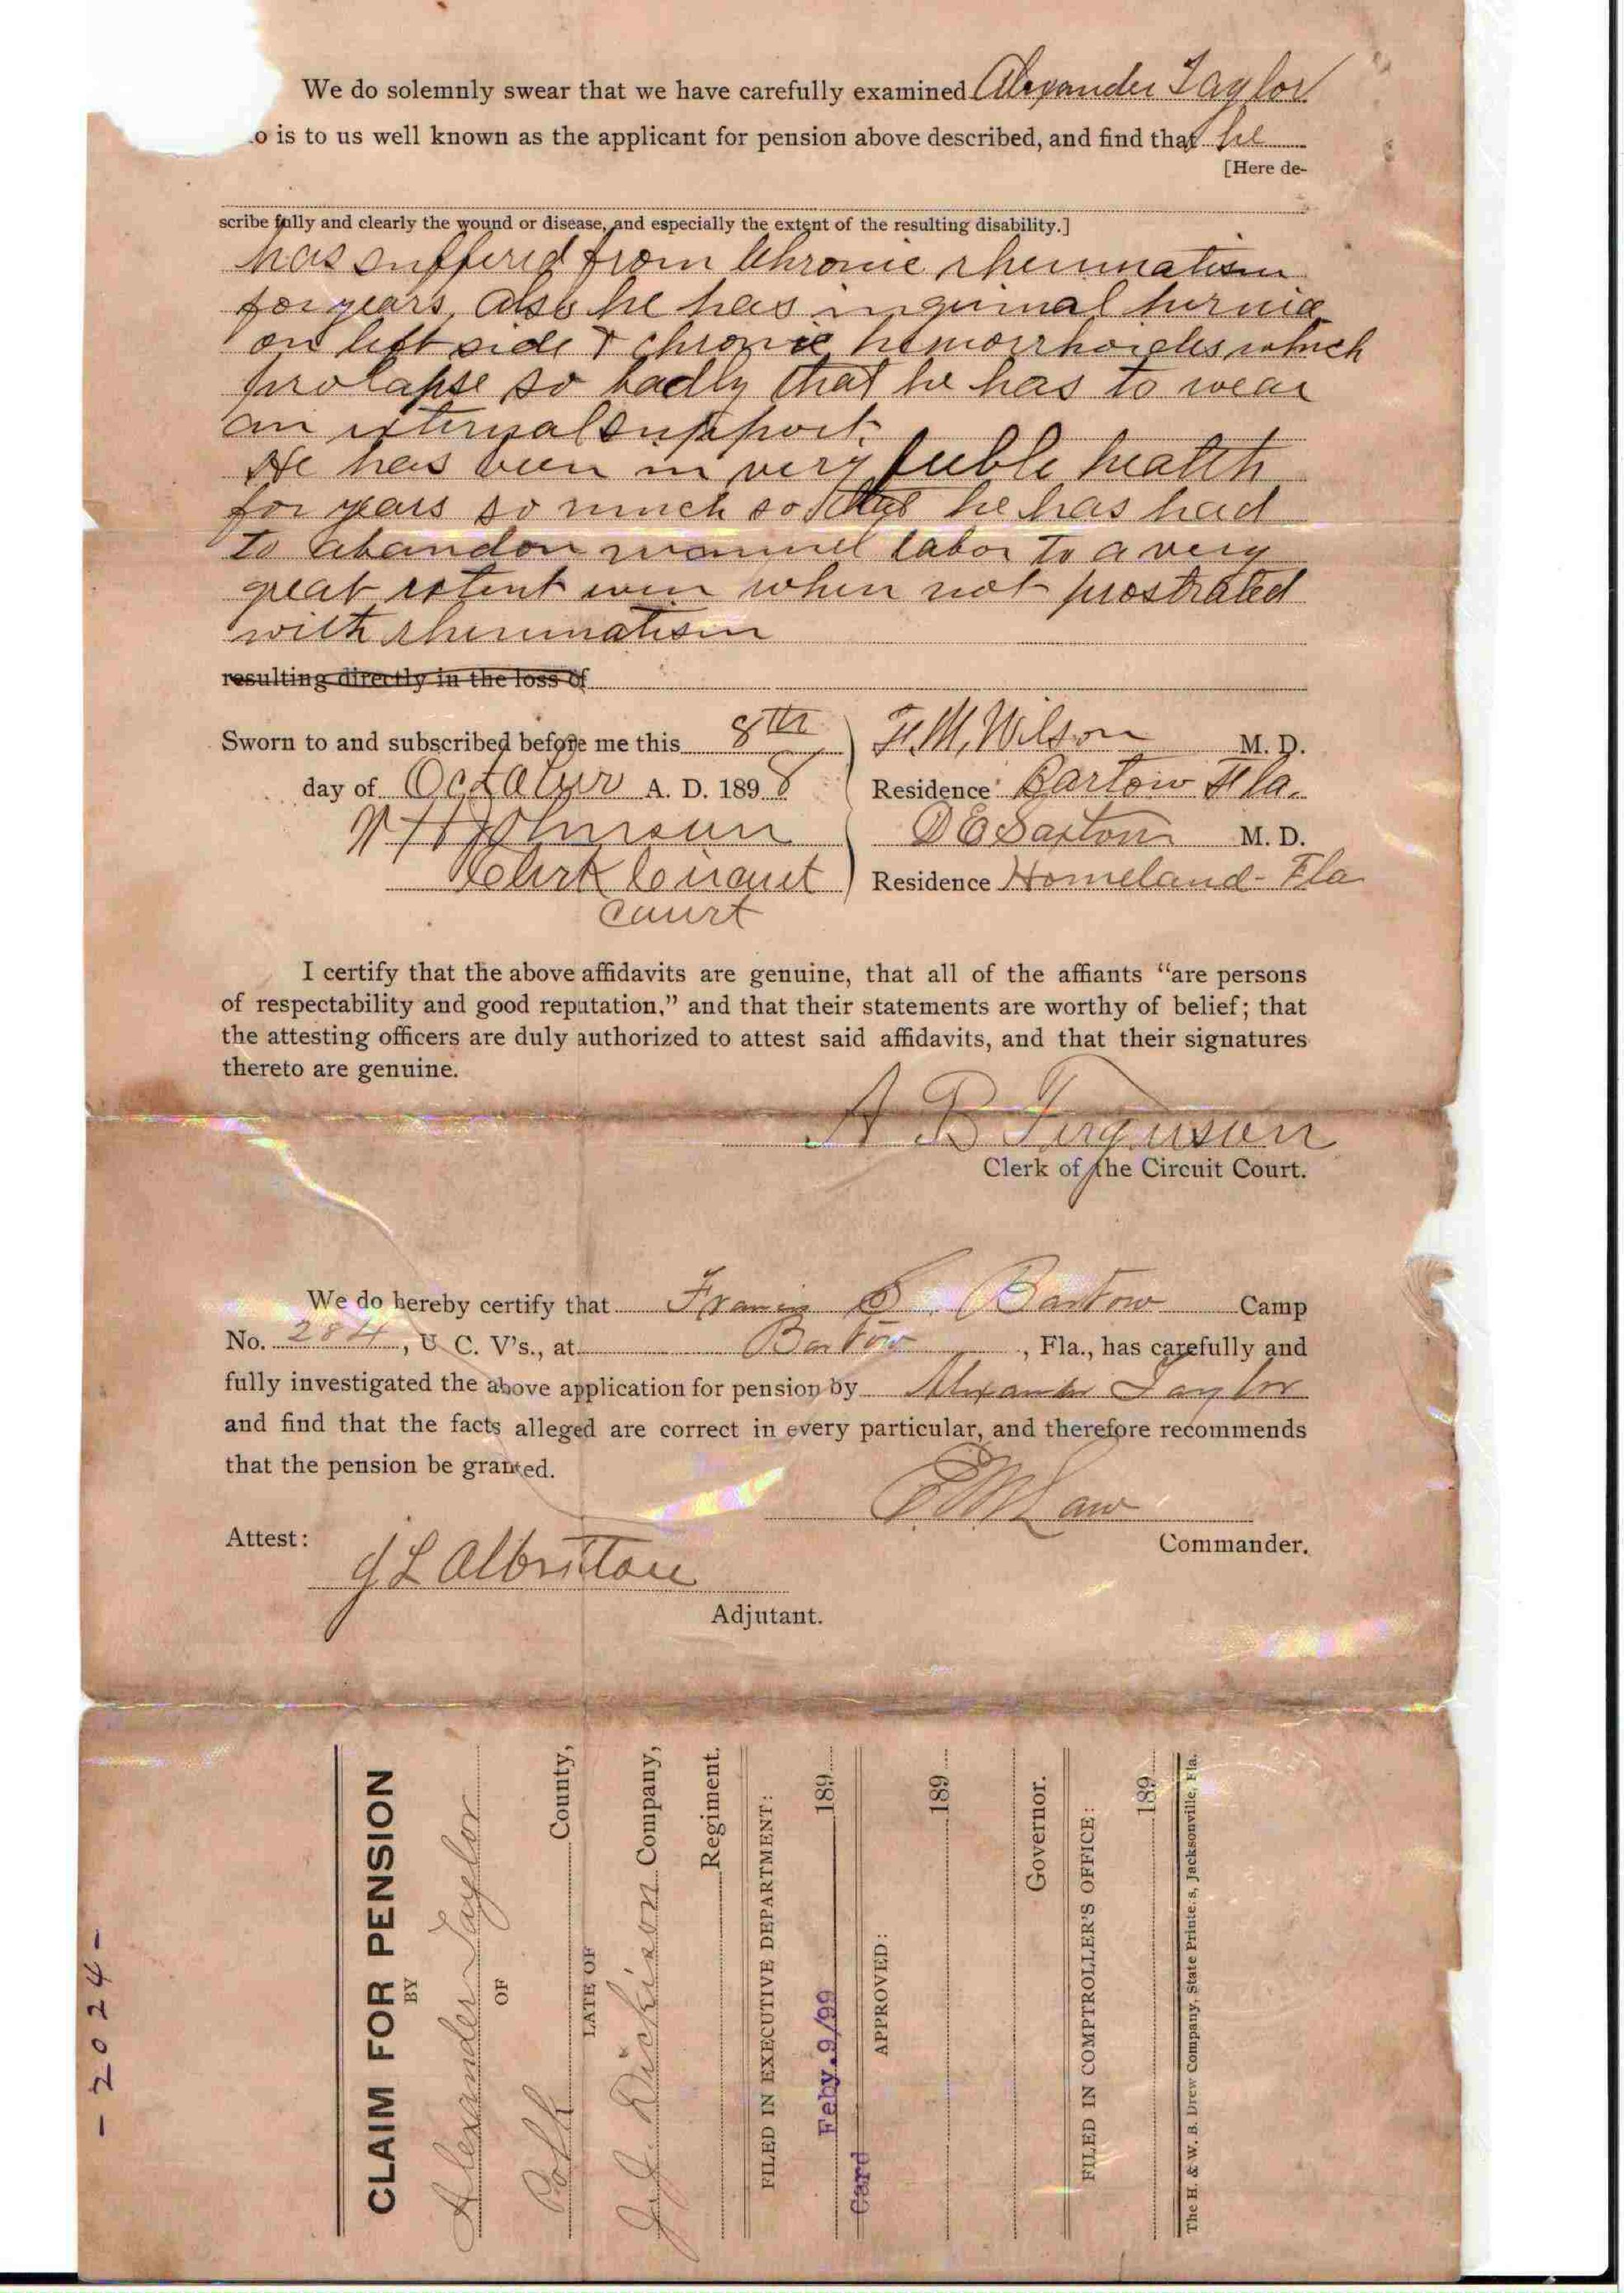 We do solemnly swear that we have carefully examined Alexander Taylor
o is to us well known as the applicant for pension above described, and find that he
[Here de-
scribe fully and clearly the wound or disease, and especially the extent of the resulting disability.]
has suffered from Chronic rheumatism
for years, also he has inguinal hernia
on left side & chronic hemorrhoides which
prolapse so badly that he has to wear
an internal support.
He has been in very feeble health
for years so much so that he has had
to abandon manuel labor to a very
great extent even when not prostrated
with rheumatism
resulting directly in the loss of
Sworn to and subscribed before me this 8th F. M. Wilson M. D.
day of October A. D. 1898 Residence Bartow Fla.
Johnson D E Saxton M. D.
Clerk Circuit Residence Homeland - Fla
Court
I certify that the above affidavits are genuine, that all of the affiants “are persons
of respectability and good reputation,” and that their statements are worthy of belief; that
the attesting officers are duly authorized to attest said affidavits, and that their signatures
thereto are genuine.
A B Ferguson
Clerk of the Circuit Court.
We do hereby certify that Francis S. Bartow Camp
No. 284, U. C. V's., at Bartow, Fla., has carefully and
fully investigated the above application for pension by Alexander Taylor
and find that the facts alleged are correct in every particular, and therefore recommends
that the pension be granted.
E. M Law
Commander.
Attest:
J L Albritton
Adjutant.
- 2024 -
CLAIM FOR PENSION
BY
Alexander Taylor
OF
Polk County,
LATE OF
J. J. Dickison Company,
Regiment.
FILED IN EXECUTIVE DEPARTMENT:
Feby. 9/99 189
Card
APPROVED:
189
Governor.
FILED IN COMPTROLLER'S OFFICE:
189
The H. & W. B. Drew Company, State Printers, Jacksonville, Fla.